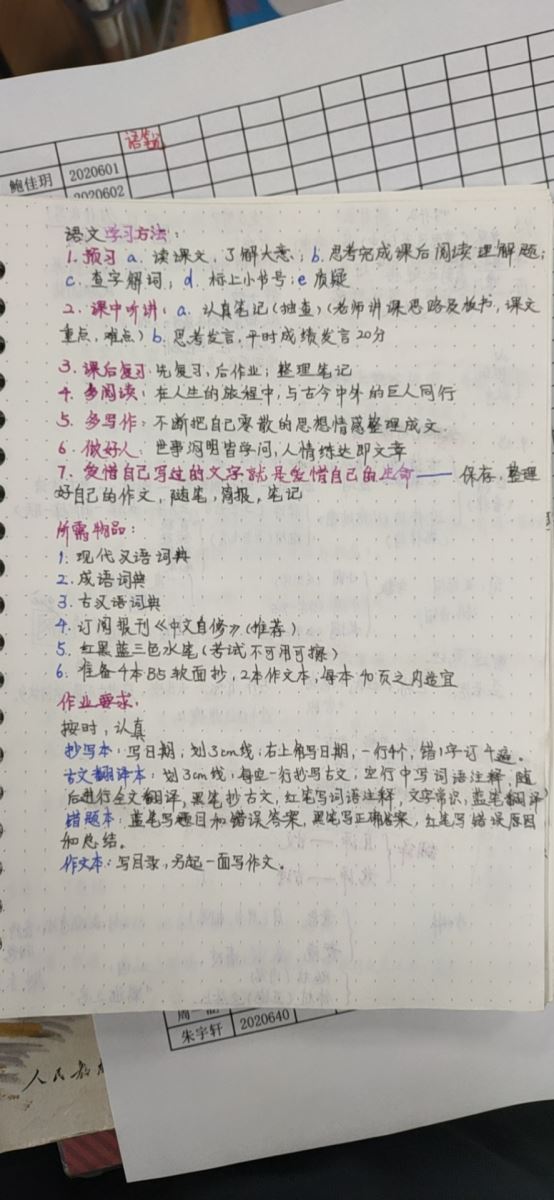 鲍佳玥 2020601
2020602
语文学习方法：
1. 预习 a. 读课文，了解大意；b. 思考完成课后阅读理解题；
c. 查字解词；d. 标上小节号；e 质疑
2. 课中听讲：a. 认真笔记（抽查）（老师讲课思路及板书，课文
重点，难点）b. 思考发言，平时成绩发言20分
3. 课后复习：先复习，后作业；整理笔记
4. 多阅读：在人生的旅程中，与古今中外的巨人同行
5. 多写作：不断把自己零散的思想情感整理成文.
6. 做好人：世事洞明皆学问，人情练达即文章
7. 爱惜自己写过的文字就是爱惜自己的生命—— 保存，整理
好自己的作文，随笔，简报，笔记
所需物品：
1. 现代汉语词典
2. 成语词典
3. 古汉语词典
4. 订阅报刊《中文自修》（推荐）
5. 红黑蓝三色水笔（考试不可用可擦）
6. 准备4本B5软面抄，2本作文本，每本40页之内适宜
作业要求：
按时，认真
抄写本：写日期；划3cm线；右上角写日期，一行4个，错1字订4遍。
古文翻译本：划3cm线；每空一行抄写古文；空行中写词语注释，随
后进行全文翻译，黑笔抄古文，红笔写词语注释，文学常识，蓝笔翻译
错题本：蓝笔写题目和错误答案，黑笔写正确答案，红笔写错误原因
和总结。
作文本：写目录，另起一面写作文。
朱宇轩 2020640
人民教